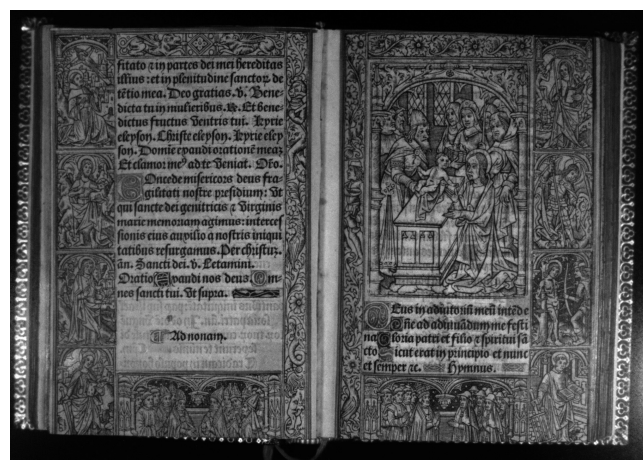 sitato ⁊ in partes dei mei hereditas
illius: et in plenitudine sanctoꝝ de
tētio mea. Deo gratias. ℣. Bene-
dicta tu in mulieribus. ℟. Et bene-
dictus fructus ventris tui. Kyrie
eleyson. Christe eleyson. Kyrie eley
son. Domīe exaudi orationē meaꝫ
Et clamor meꝰ ad te veniat. Oro.
Concede misericors deus fra-
gilitati nostre presidium: vt
qui sancte dei genitricis ⁊ virginis
marie memoriam agimus: interces
sionis eius auxilio a nostris iniqui
tatibus resurgamus. Per christuꝫ.
añ. Sancti dei. ℣. Letamini.
Oratio Exaudi nos deus. Om-
nes sancti tui. Vt supra.
Ad nonam.
Deus in adiutoriū meū intēde
Dñe ad adiuuādum me festi
na Gloria patri et filio ⁊ spiritui sā
cto Sicut erat in principio et nunc
et semper ⁊c. Hymnus.